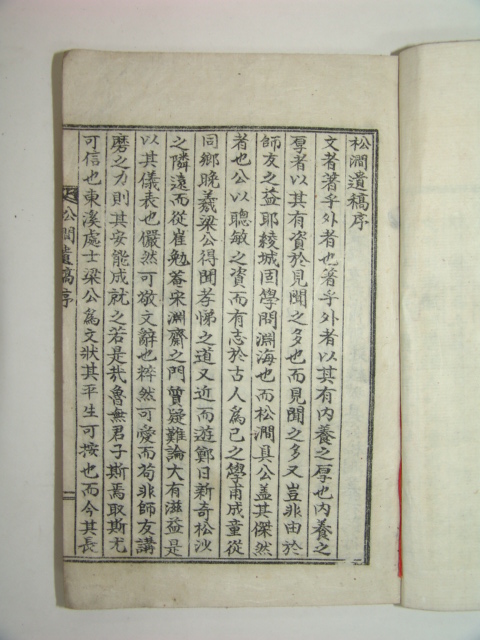 松澗遺稿序
文者著乎外者也著乎外者以其有內養之厚也內養之
厚者以其有資於見聞之多也而見聞之多又豈非由於
師友之益耶綾城固學問淵海也而松澗具公盖其傑然
者也公以聰敏之資而有志於古人爲己之學甫成童從
同鄉晚羲梁公得聞孝悌之道又近而遊鄭日新奇松沙
之隣遠而從崔勉菴宋淵齋之門質疑難論大有滋益是
以其儀表也儼然可敬文辭也粹然可愛而苟非師友講
磨之力則其安能成就之若是㦲魯無君子斯焉取斯尤
可信也東溪處士梁公爲文狀其平生可按也而今其長
松澗遺稿序
一